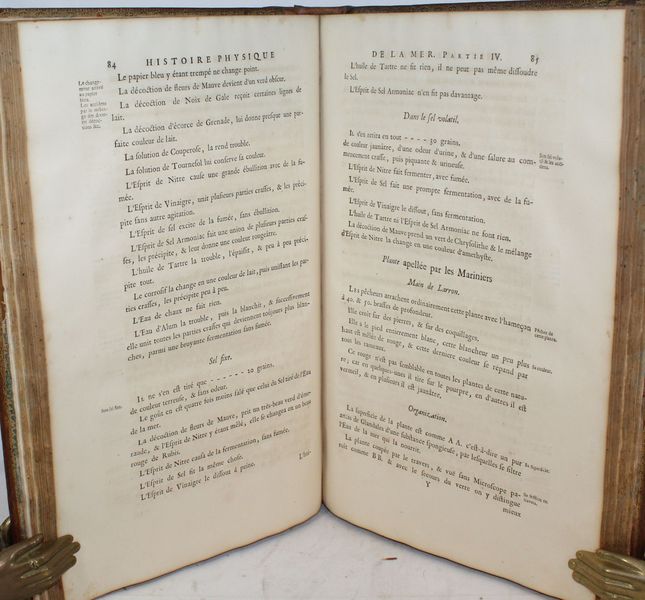 84 HISTOIRE PHYSIQUE
Le change-
ment arrivé
au papier
bleu.
Le papier bleu y étant trempé ne change point.
La décoction de fleurs de Mauve devient d'un verd obscur.
La décoction de Noix de Gale reçoit certaines lignes de
lait.
La décoction d'écorce de Grenade, lui donne presque une par-
faite couleur de lait.
La solution de Couperose, la rend trouble.
La solution de Tournesol lui conserve sa couleur.
L'Esprit de Nitre cause une grande ébullition avec de la fu-
mée.
L'Esprit de Vinaigre, unit plusieurs parties crasses, & les préci-
pite sans autre agitation.
L'Esprit de sel excite de la fumée, sans ébullition.
L'Esprit de Sel Armoniac fait une union de plusieurs parties cras-
ses, les précipite, & leur donne une couleur rougeâtre.
L'huile de Tartre la trouble, l'épaissit, & peu à peu préci-
pite tout.
Le corrosif la change en une couleur de lait, puis unissant les par-
ties crasses, les précipite peu à peu.
L'Eau de chaux ne fait rien.
L'Eau d'Alum la trouble, puis la blanchit, & successivement
elle unit toutes les parties crasses qui deviennent toûjours plus blan-
ches, parmi une bruyante fermentation sans fumée.
Sel fixe.
Son sel fixe.
Il ne s'en est tiré que - - - - - - - 20 grains.
de couleur terreuse, & sans odeur.
Le goût en est quatre fois moins salé que celui du Sel tiré de l'Eau
de la mer.
La décoction de fleurs de Mauve, prit un très-beau verd d'éme-
raude, & l'Esprit de Nitre y étant mêlé, elle se changea en un beau
rouge de Rubis.
L'Esprit de Nitre causa de la fermentation, sans fumée.
L'Esprit de Sel fit la même chose.
L'Esprit de Vinaigre le dissout à peine.
L'hui-
DE LA MER. PARTIE IV. 85
L'huile de Tartre ne fit rien, il ne peut pas même dissoudre
le Sel.
L'Esprit de Sel Armoniac n'en fit pas davantage.
Dans le sel volatil.
Il s'en attira en tout - - - - 30 grains.
de couleur jaunâtre, d'une odeur d'urine, & d'une salure au com-
mencement crasse, puis piquante & urineuse.
L'Esprit de Nitre fait fermenter, avec fumée.
L'Esprit de Sel fait une prompte fermentation, avec de la fu-
mée.
L'Esprit de Vinaigre le dissout, sans fermentation.
L'huile de Tartre ni l'Esprit de Sel Armoniac ne font rien.
La décoction de Mauve prend un vert de Chrysolithe & le mélange
d'Esprit de Nitre la change en une couleur d'amethyste.
Plante apellée par les Mariniers
Main de Larron.
Les pêcheurs arrachent ordinairement cette plante avec l'hameçon
à 40. & 50. brasses de profondeur.
Pêche de
cette plante.
Elle croît sur des pierres, & sur des coquillages.
Elle a le pied entierement blanc, cette blancheur un peu plus
haut est mêlée de rouge, & cette derniere couleur se répand par
tous les rameaux.
Sa couleur.
Ce rouge n'est pas semblable en toutes les plantes de cette natu-
re; car en quelques-unes il tire sur le pourpre, en d'autres il est
vermeil, & en plusieurs il est jaunâtre.
Organisation.
La superficie de la plante est comme A A. c'est-à-dire un pur
amas de Glandules d'une substance spongieuse, par lesquelles se filtre
l'Eau de la mer qui la nourrit.
La plante coupée par le travers, & vuë sans Microscope pa-
roît comme BB. & avec le secours du verre on y distingue
Y mieux